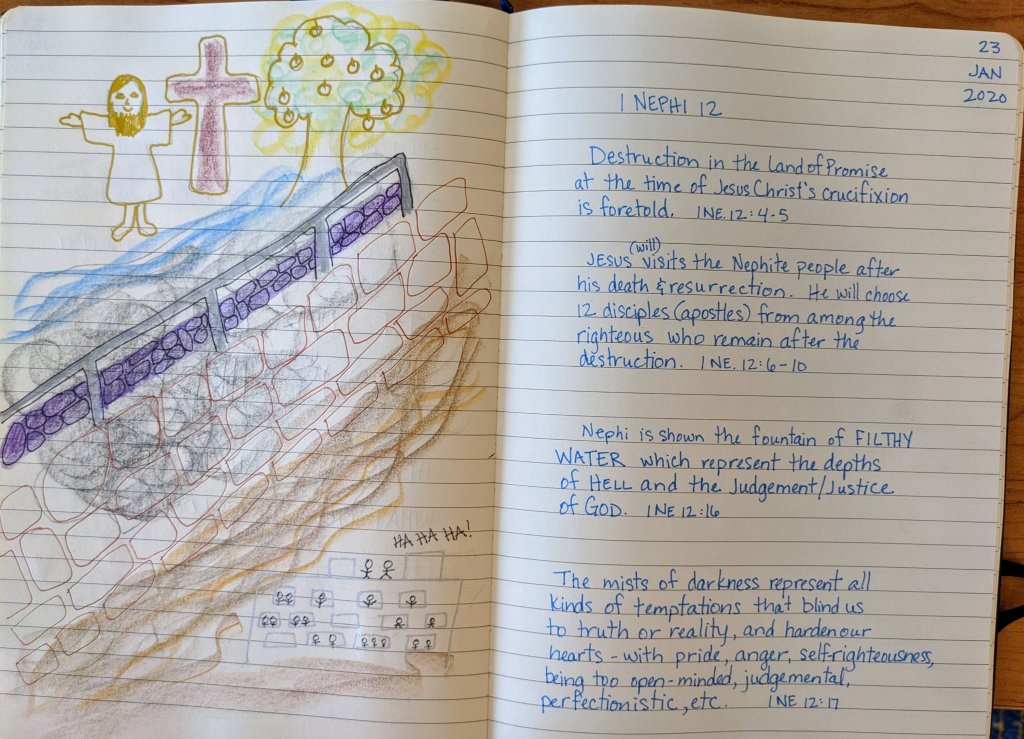 HA HA HA!
23
JAN
2020
1 NEPHI 12
Destruction in the Land of Promise
at the time of Jesus Christ's crucifixion
is foretold. 1 NE. 12:4-5
(will)
JESUS visits the Nephite people after
his death & resurrection. He will choose
12 disciples (apostles) from among the
righteous who remain after the
destruction. 1 NE. 12:6-10
Nephi is shown the fountain of FILTHY
WATER which represent the depths
of HELL and the Judgement/Justice
of GOD. 1 NE 12:16
The mists of darkness represent all
kinds of temptations that blind us
to truth or reality, and harden our
hearts - with pride, anger, self-righteousness,
being too open-minded, judgemental,
perfectionistic, etc. 1 NE 12:17